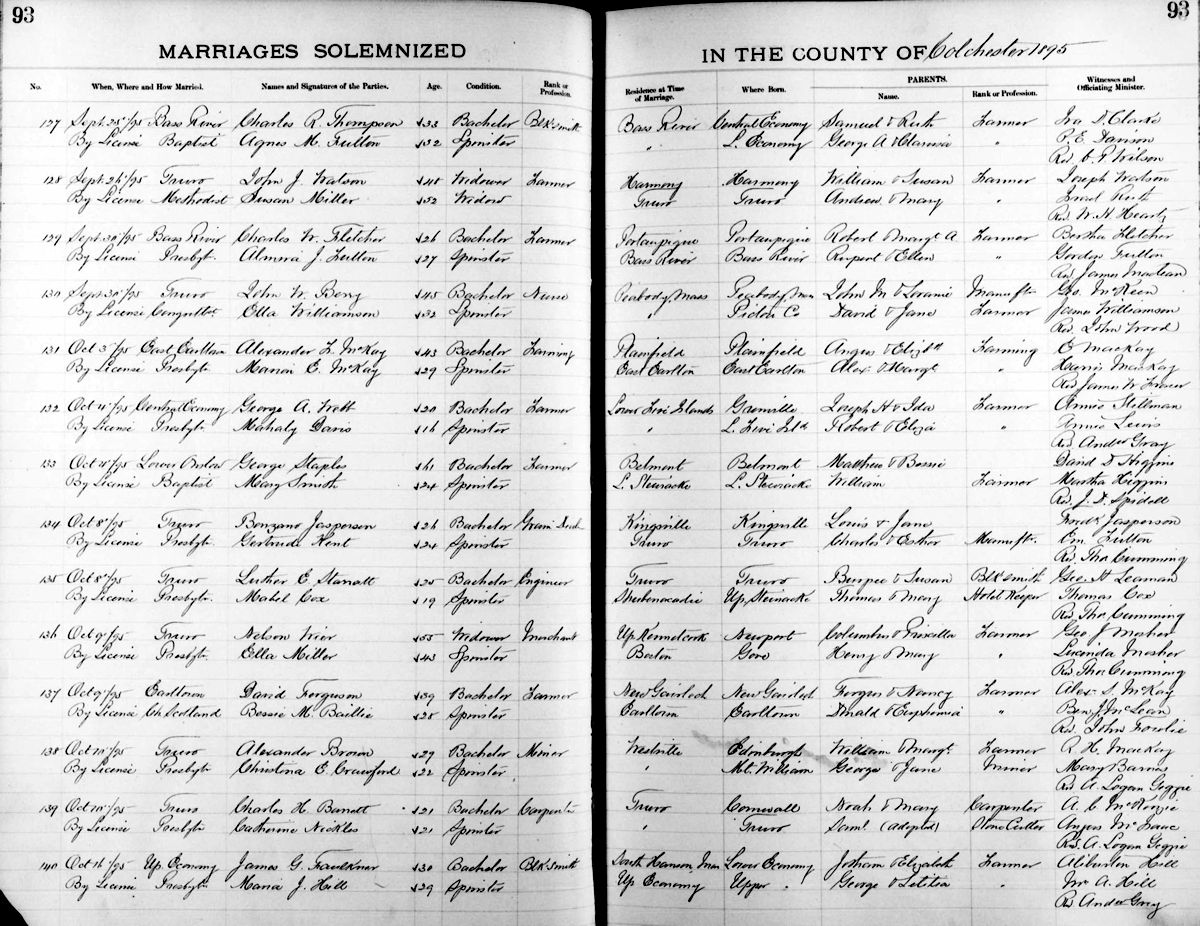 93
MARRIAGES SOLEMNIZED
No. When, Where and How Married. Names and Signatures of the Parties. Age. Condition. Rank or Profession.
127 Sept. 25/95 Bass River Charles R. Thompson 33 Bachelor Blk Smith
By License Baptist Agnes M. Fulton 32 Spinster
128 Sept. 26/95 Truro John J. Watson Widower Farmer
By License Methodist Susan Miller 52 Widow
129 Sept. 30/95 Bass River Charles W. Fletcher 26 Bachelor Farmer
By License Presbyt. Almira J. Fulton 27 Spinster
130 Sept. 30/95 Truro John W. Berry 45 Bachelor Nurse
By License Ella Williamson 32 Spinster
131 Oct 3/95 East Earltown Alexander L. McKay 43 Bachelor Farming
By License Presbyt. Marion E. McKay 29 Spinster
132 Oct 4/95 Central Economy George A. Webb 20 Bachelor Farmer
By License Presbyt. Mahaly Davis 16 Spinster
133 Oct /95 Lower Onslow George Staples 61 Bachelor Farmer
By License Baptist Mary Smith 24 Spinster
134 Oct 8/95 Truro Bonzano Jasperson 26 Bachelor
By License Presbyt. Gertrude Kent 24 Spinster
135 Oct 8/95 Truro Luther E. Starratt 25 Bachelor Engineer
By License Presbyt. Mabel Cox 19 Spinster
136 Oct 9/95 Truro Nelson Wier 55 Widower Merchant
By License Presbyt. Ella Miller 43 Spinster
137 Oct 9/95 Earltown David Ferguson 39 Bachelor Farmer
By License Ch Scotland Bessie M. Baillie 28 Spinster
138 Oct 10/95 Truro Alexander Brown 29 Bachelor Miner
By License Presbyt Christina E. Crawford 22 Spinster
139 Oct 10/95 Truro Charles H. Barratt 21 Bachelor Carpenter
By License Presbyt. Catherine Nickles 21 Spinster
140 Oct 16/95 Up. Economy James G. Faulkner 30 Bachelor Blk Smith
By License Presbyt. Maria J. Hill 29 Spinster
93
IN THE COUNTY OF Colchester 1895
Residence at Time of Marriage. Where Born. PARENTS. Name. Rank or Profession. Witnesses and Officiating Minister.
Bass River Central Economy Samuel & Ruth Farmer Ira D. Clarke
" L. Economy George A & Clarissa " P. E. Davison
Rev. C. P. Wilson
Harmony Harmony William & Susan Farmer Joseph Watson
Truro Truro Andrew & Mary "
Rev. W. H. Heartz
Portaupique Portaupique Robert & Margt A Farmer Bertha Fletcher
Bass River Bass River Rupert & Ellen " Gordon Fulton
Rev. James Maclean
Peabody, Mass Peabody Mass John M & Manuftr. Geo. McKeen
" Pictou Co David & Jane Farmer James Williamson
Rev. John Wood
Plainfield Plainfield Angus & Elizbth Farming C. MacKay
East Earlton East Earlton Alex & Margt " MacKay
Rev. James W.
Lower Five Islands Grenville Joseph H & Ida Farmer Annie Stillman
" L. Five Isld Robert & Eliza " Annie Lewis
Rev. Andw Gray
Belmont Belmont Matthew & Bessie David D Higgins
L. Stewiacke L. Stewiacke William Farmer Martha Higgins
Rev. J. D. Spidell
Kingsville Kingsville Louis & Jane Fredk Jasperson
Truro Truro Charles & Esther Manuftr. Em Fulton
Rev. Thos Cumming
Truro Truro Burpee & Susan Blk Smith Geo. H Leaman
Shubenacadie Up. Stewiacke Thomas & Mary Hotel Keeper Thomas Cox
Rev. Thos Cumming
Up Kennetcook Newport Columbus & Priscilla Farmer Geo. J Mosher
Boston Gore Henry & Mary " Lucinda Mosher
Rev. Thos Cumming
New Gairloch New Gairloch Fergus & Nancy Farmer Alex S. McKay
Earltown Earltown Donald & Euphemia " Ben. J. McLean
Rev. John Fowlie
Westville Edinburgh William & Margt. Farmer R. H. MacKay
" Mt. William George & Jane Miner Mary Barnes
Rev. A. Logan Geggie
Truro Cornwall Noah & Mary Carpenter A. C. McKenzie
" Truro Saml. (adopted) Stone Cutter Angus McIsaac
Rev. A. Logan Geggie
South Hanson, Mass Lower Economy Jotham & Elizabeth Farmer Aliburton Hill
Up Economy Upper " George & Letitia " Wm A. Hill
Rev Andw Gray